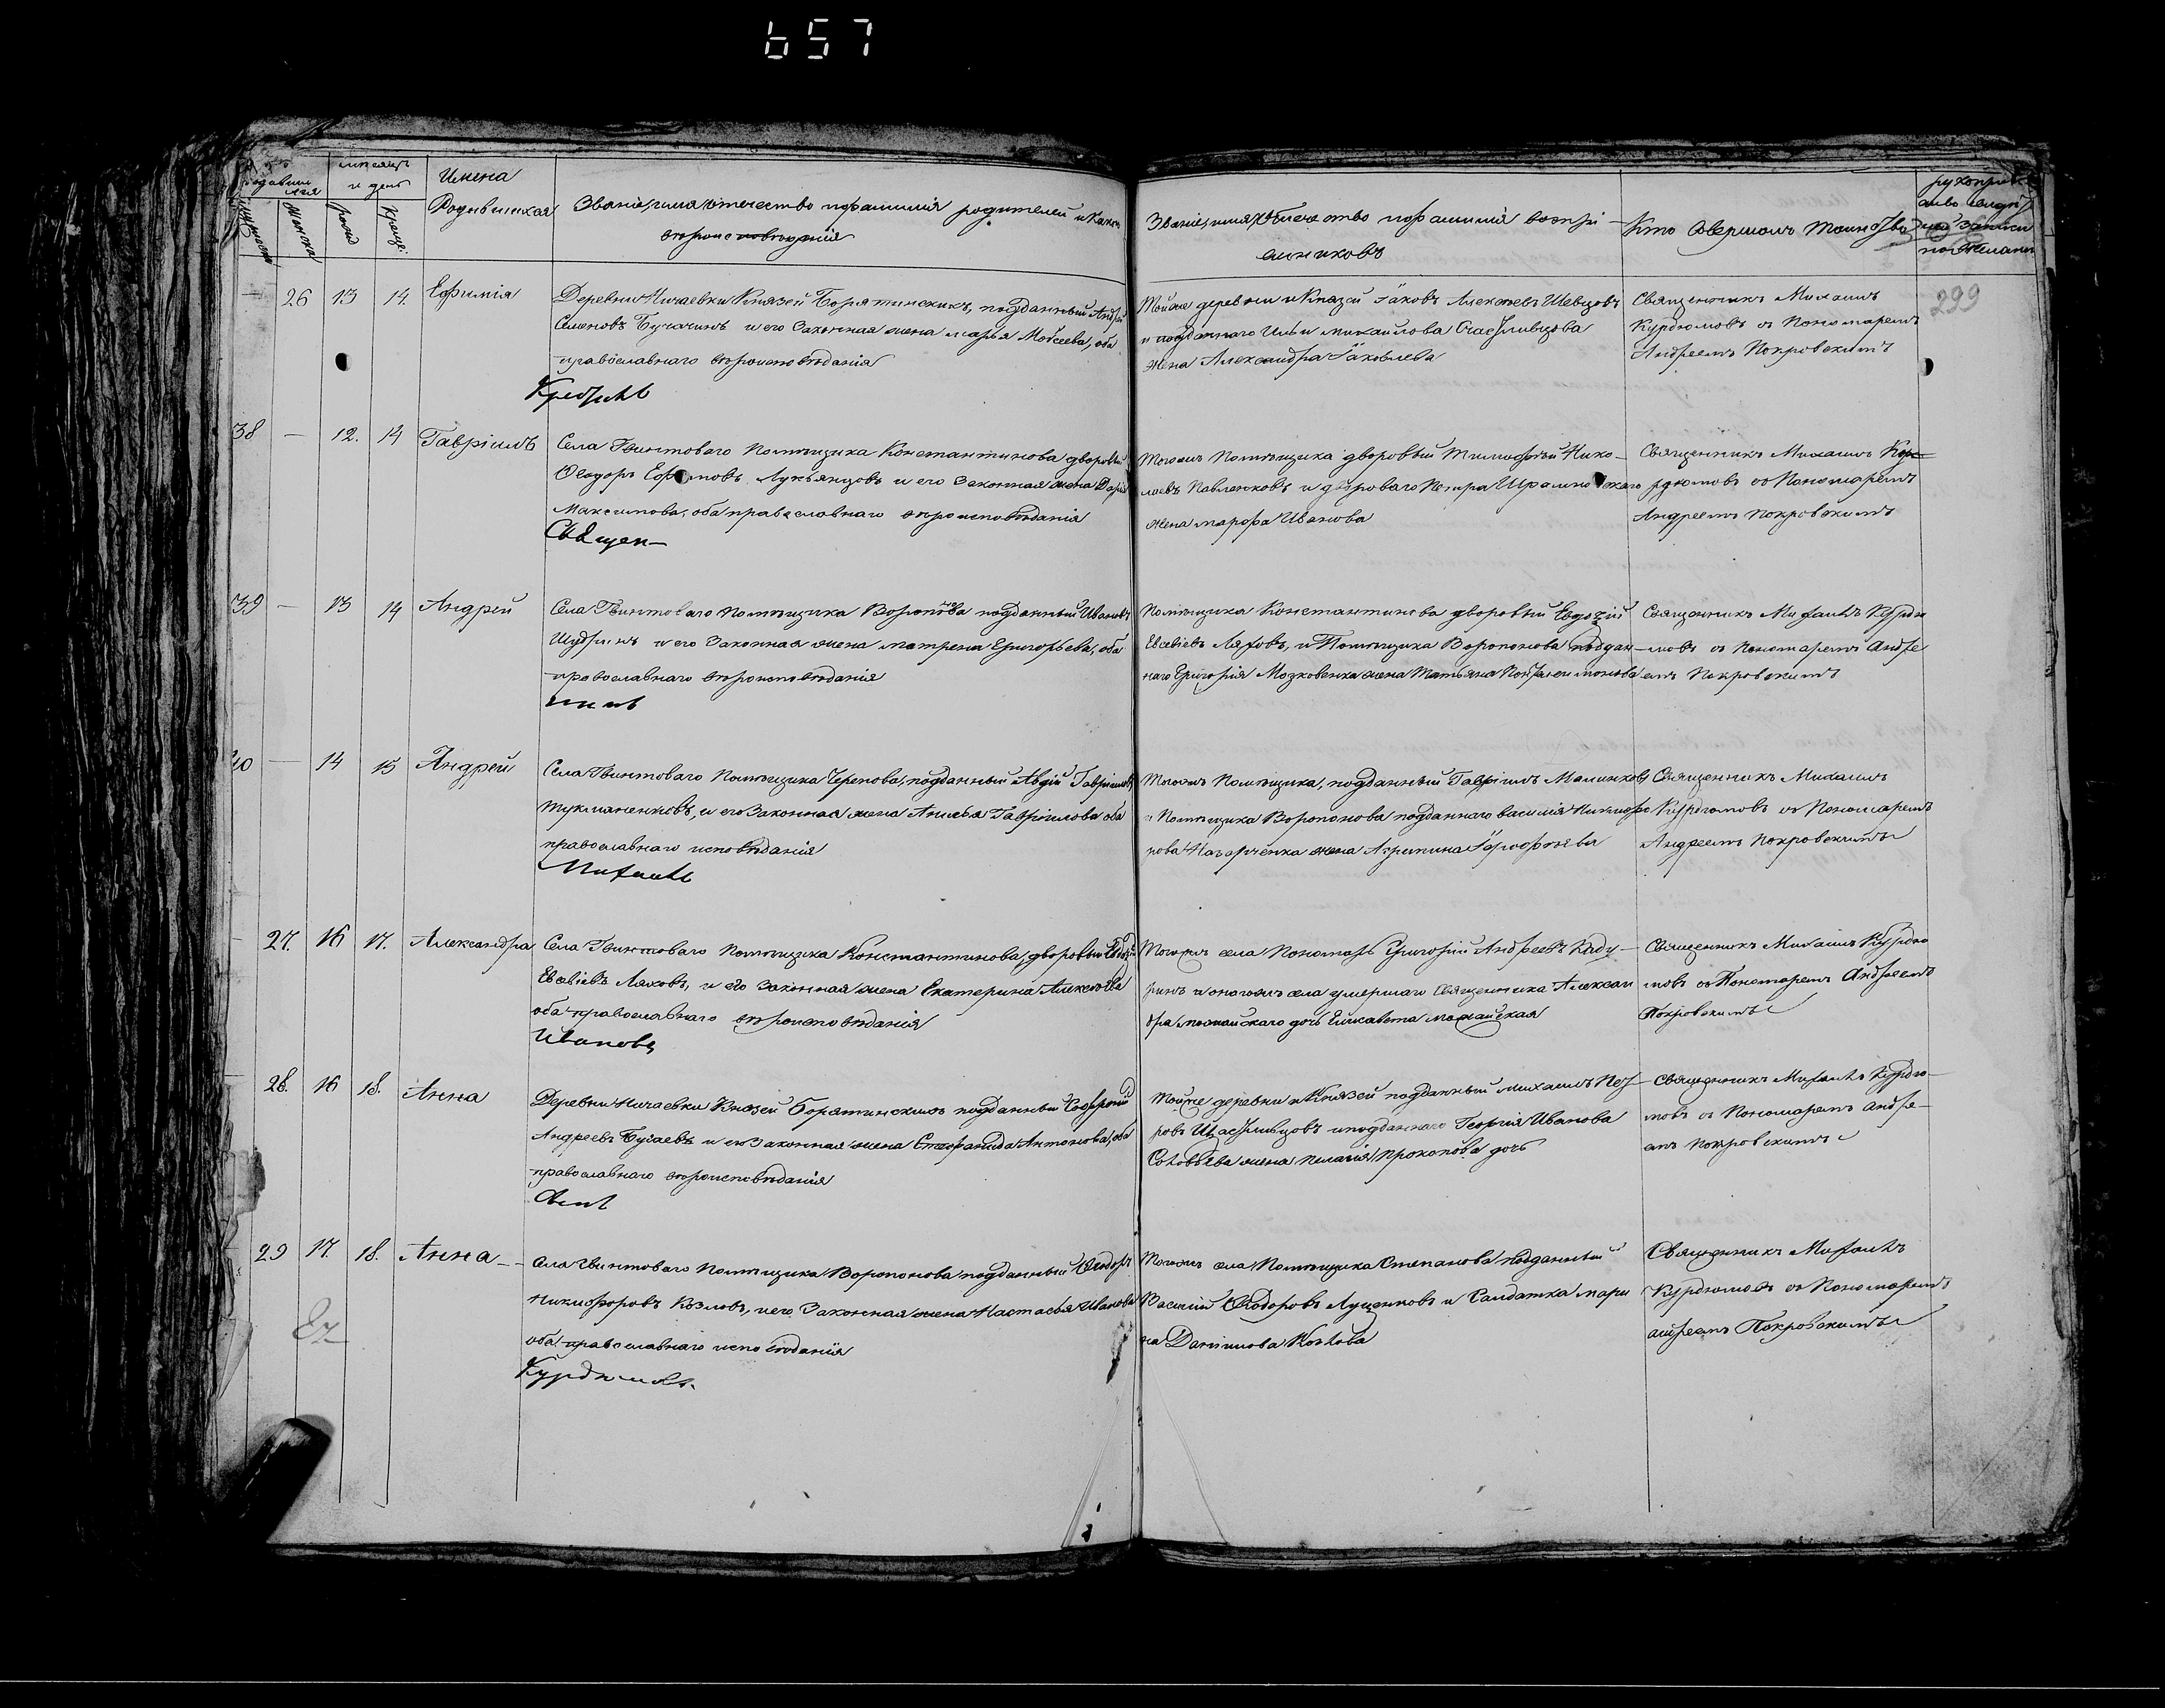 657
родившихся
мѣсяцъ и день
Имена Родившихся
Званіе, имя, отечество и фамилія родителей и какого
вѣроисповѣданія
Званіе, имя, отечество и фамилія воспрі-
емниковъ
Кто совершалъ таинство
299
26 13 14 Ефимія
Деревни Ничаевки Князей Борятинскихъ, подданный Андрей
Семеновъ Бугачинъ и его Законная жена марья Моѵсеева, оба
православнаго вѣроисповѣданія
Тойже деревни и Князей Іаковъ Алексѣевъ Шевцовъ
и подданнаго Ильи михаилова Счастливцова
жена Александра Іаковлева
Священникъ Михаилъ
Курдюмовъ съ Пономаремъ
Андреемъ Покровскимъ
38 — 12. 14 Гавріилъ
Села Гвинтоваго Помѣщика Константинова дворовый
Ѳеодоръ Ефимовъ Лукьянцовъ и его Законная жена Дарія
Максимова, оба православнаго вѣроисповѣданія
Священ-
Тогожъ Помѣщика дворовый Тимофѣй Нико-
лаевъ Павленковъ и двороваго Петра
жена марфа Иванова
Священникъ Михаилъ Кур-
рдюмовъ съ Пономаремъ
Андреемъ Покровскимъ
39 — 13 14 Андрей
Села Гвинтоваго помѣщика Воропонова подданный Ивановъ
и его Законная жена матрена Григорьева, оба
православнаго вѣроисповѣданія
никъ
Помѣщика Константинова дворовый
Евсевіевъ Ляховъ, и Помѣщика Воропонова поддан-
наго Григорія Мозковенка жена Татьяна
Священникъ Михаилъ Курдю
мовъ съ Пономаремъ Андре
емъ Покровскимъ
40 — 14 15 Андрей
Села Гвинтоваго Помѣщика Черепова, подданный Авдій Гавріиловъ
Тукманенковъ, и его Законная жена Гавріилова оба
православнаго исповѣданія
Михаилъ
Тогожъ Помѣщика, подданный Гавріилъ Малинковъ
и Помѣщика Воропонова подданнаго василія Никифо
рова Назарченка жена Агрипина
Священникъ Михаилъ
Курдюмовъ съ Пономаремъ
Андреемъ Покровскимъ
27. 16 17. Александра
Села Гвинтоваго Помѣщика Константинова, дворовый
Евсевіевъ Ляховъ, и его Законная жена Екатерина Алексѣева
оба православнаго вѣроисповѣданія
Ивановъ
Тогожъ села Пономарь Григорій Андреевъ Кады-
ринъ и оногожъ села умершаго Священника Алексан
дра дочь Елисавета
Священникъ Михаилъ Курдю
мовъ съ Пономаремъ Андреемъ
Покровскимъ
28. 16 18. Анна
Деревни Ничаевки Князей Борятинскихъ подданный Софроній
Андреевъ Бугаевъ и его Законная жена Стефанида Антонова, оба
православнаго вѣроисповѣданія
Тойже деревни и Князей подданный Михаилъ Пет-
ровъ Щастливцовъ и подданнаго Георгія Иванова
Соловьева жена Пелагія Прокопова дочь
Священникъ Михаилъ Курдю-
мовъ съ Пономаремъ Андре-
емъ Покровскимъ
29 17. 18. Анна
Села Гвинтоваго Помѣщика Воропонова подданный Ѳеодоръ
Никифоровъ Козловъ, и его Законная жена Настасья Иванова
оба православнаго исповѣданія
Курдюмовъ.
Тогожъ села Помѣщика Степанова подданный
Василій Ѳеодоровъ Луценковъ и Салдатка мари
на Даніилова Козлова
Священникъ Михаилъ
Курдюмовъ съ Пономаремъ
Андреемъ Покровскимъ